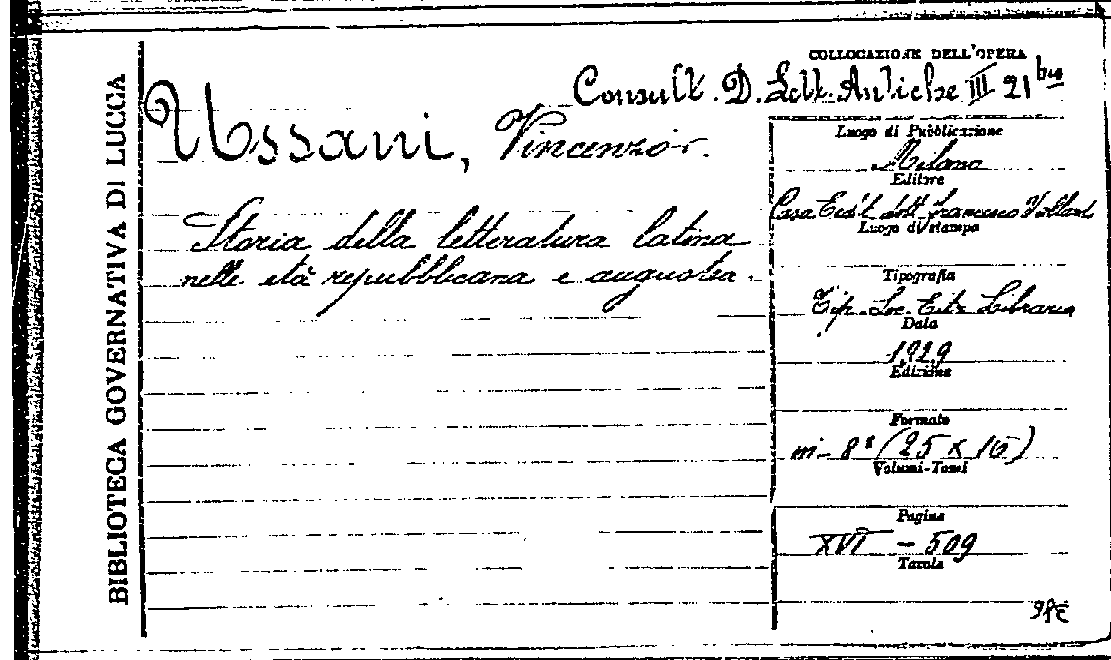 BIBLIOTECA GOVERNATIVA DI LUCCA
COLLOCAZIONE DELL'OPERA
Consult. D. Lett. Antiche III 21 bis
Ussani, Vincenzo.
Storia della letteratura latina
nelle età repubblicana e augustea.
Luogo di Pubblicazione
Milano
Editore
Casa Edit. dott. Francesco Vallardi
Luogo di stampa
Tipografia
Tip. Soc. Edit. Libraria
Data
1929
Edizione
Formato
in-8° (25 x 16)
Volumi-Tomi
Pagine
XVI - 509
Tavole